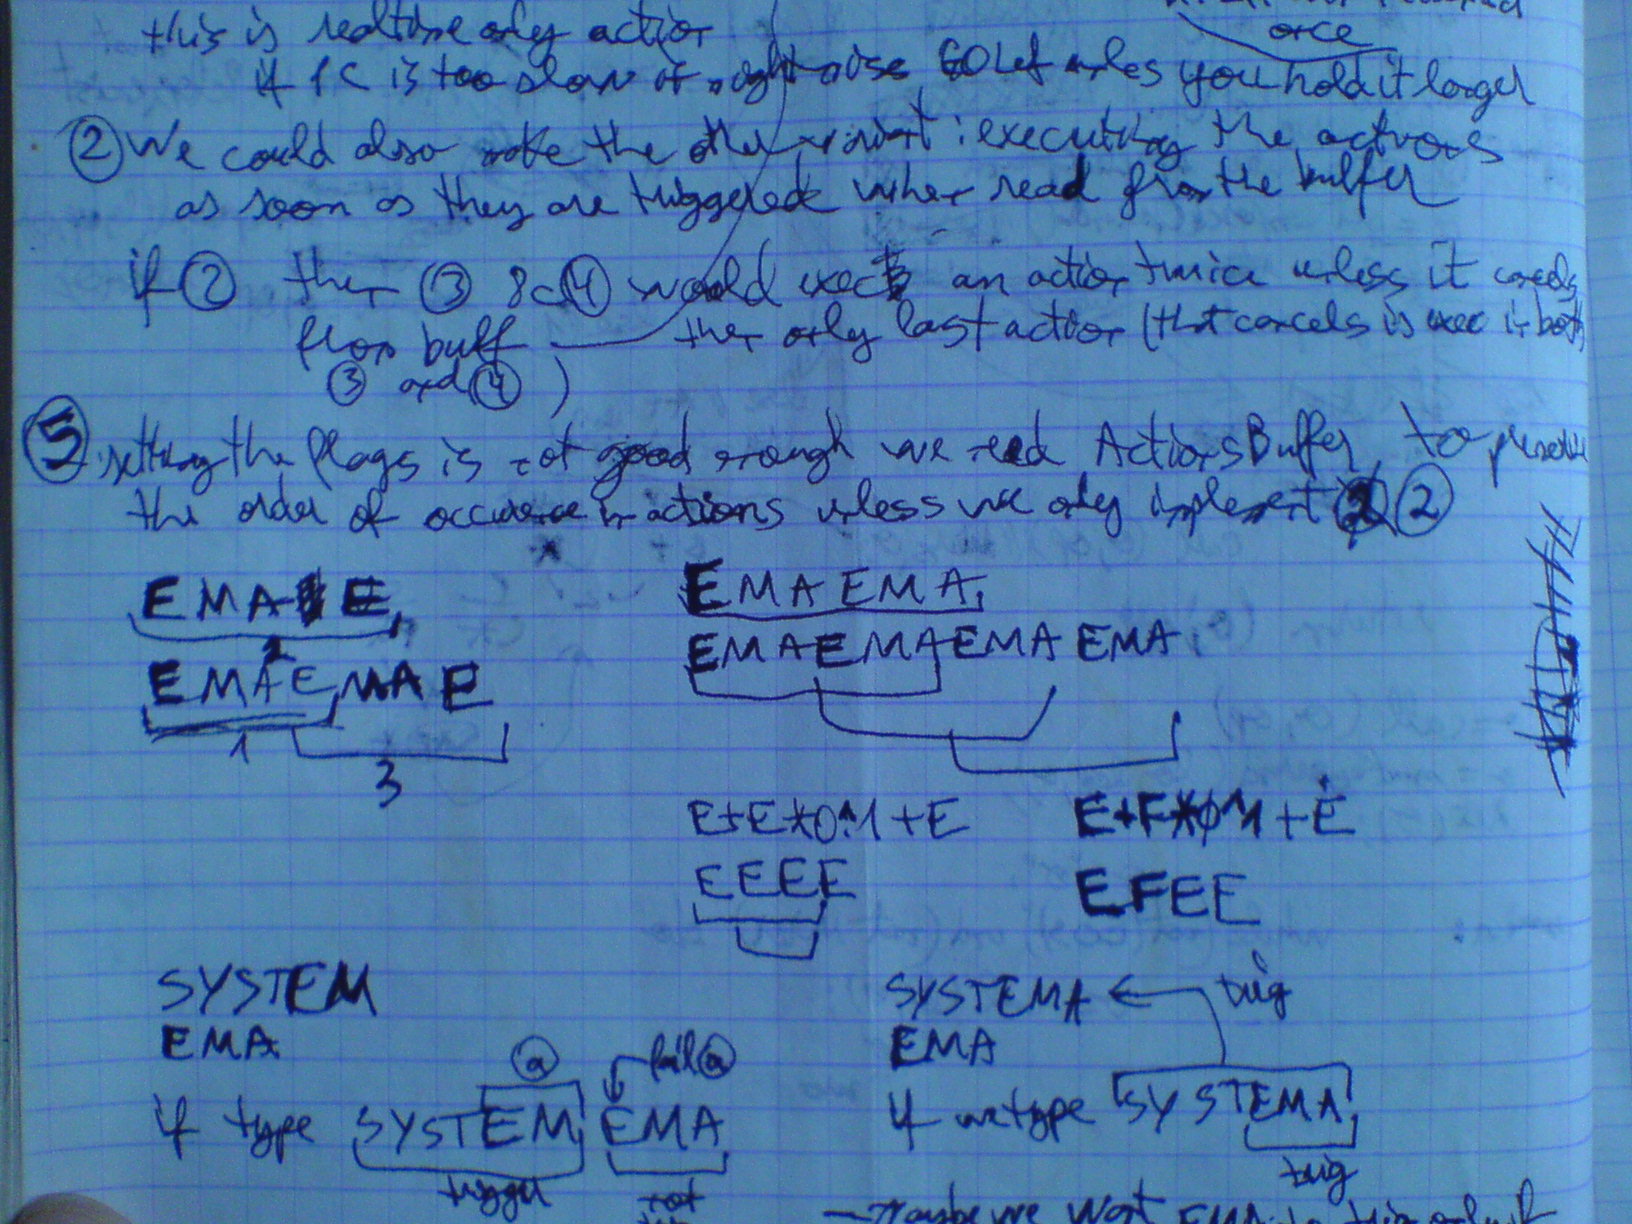 this is realtime only action
once
if PC is too slow it might miss GOLeft unless you hold it longer
② We could also make the other variant : executing the actions
as soon as they are triggered when read from the buffer
if ② then ③ & ④ would exec an action twice unless it cancels
from buff then only last action (that cancels is exec in both
③ and ④ )
⑤ setting the flags is not good enough we need ActionsBuffer to preserve
the order of occurence in actions unless we only implement ②
EMA E EMAEMA
2
EMAEMAE EMAEMAEMAEMA
1
3
E+E*0^1+E E+F*0^1+E
EEEE EFEE
SYSTEM SYSTEMA ← trig
EMA EMA
ⓐ fail ⓐ
if type SYSTEM EMA if we type SYSTEMA
trigger not trig
- maybe we want EMA to trig only if